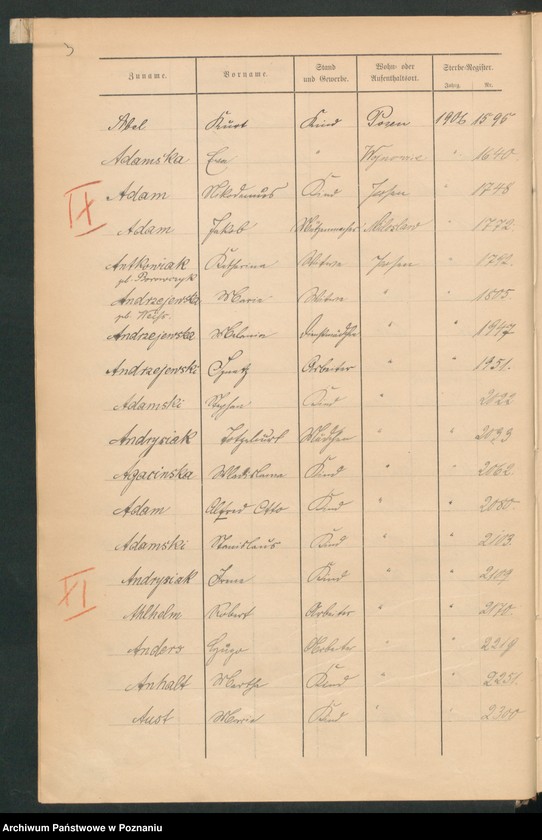 Zuname. Vorname. Stand und Gewerbe. Wohn- oder Aufenthaltsort. Sterbe-Register.
Jahrg. Nr.
Abel Kurt Kind Posen 1906 1595
Adamska Eva " " 1640
IX
Adam Nikodemus Kind Posen " 1748
Adam Jakob Mützenmacher Miloslaw " 1772
Antkowiak Katharina Witwe Posen " 1792.
Andrzejewska Marie Witwe " " 1805
Andrzejewska Melanie Dienstmädchen " " 1947
Andrzejewski Ignatz Arbeiter " " 1951.
Adamski Stephan Kind " " 2022
Andrysiak Mädchen " "
Agacinska Wladislawa Kind " " 2062
Adam Alfred Otto Kind " " 2080
Adamski Stanislaus Kind " " 2103
XI
Andrysiak Irene Kind " " 2109
Ahlhelm Robert Arbeiter " "
Anders Hugo Arbeiter " " 2219
Anhalt Martha Kind " " 2251.
Aust Marie Kind " " 2300
Archiwum Państwowe w Poznaniu